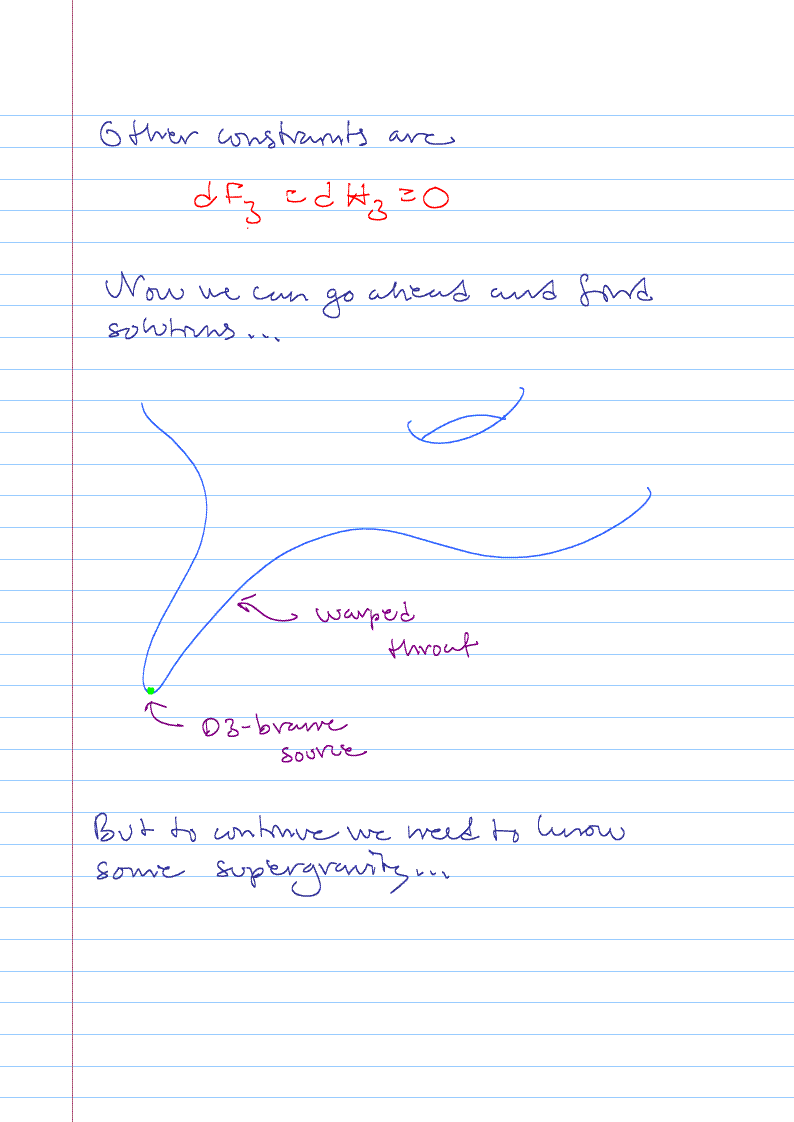 Other constraints are
dF₃ = dH₃ = 0
Now we can go ahead and find
solutions...
warped
throat
D3-brane
source
But to continue we need to know
some supergravity...